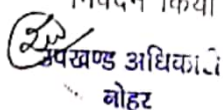 निवेदन किया
उपखण्ड अधिकारी
नोहर